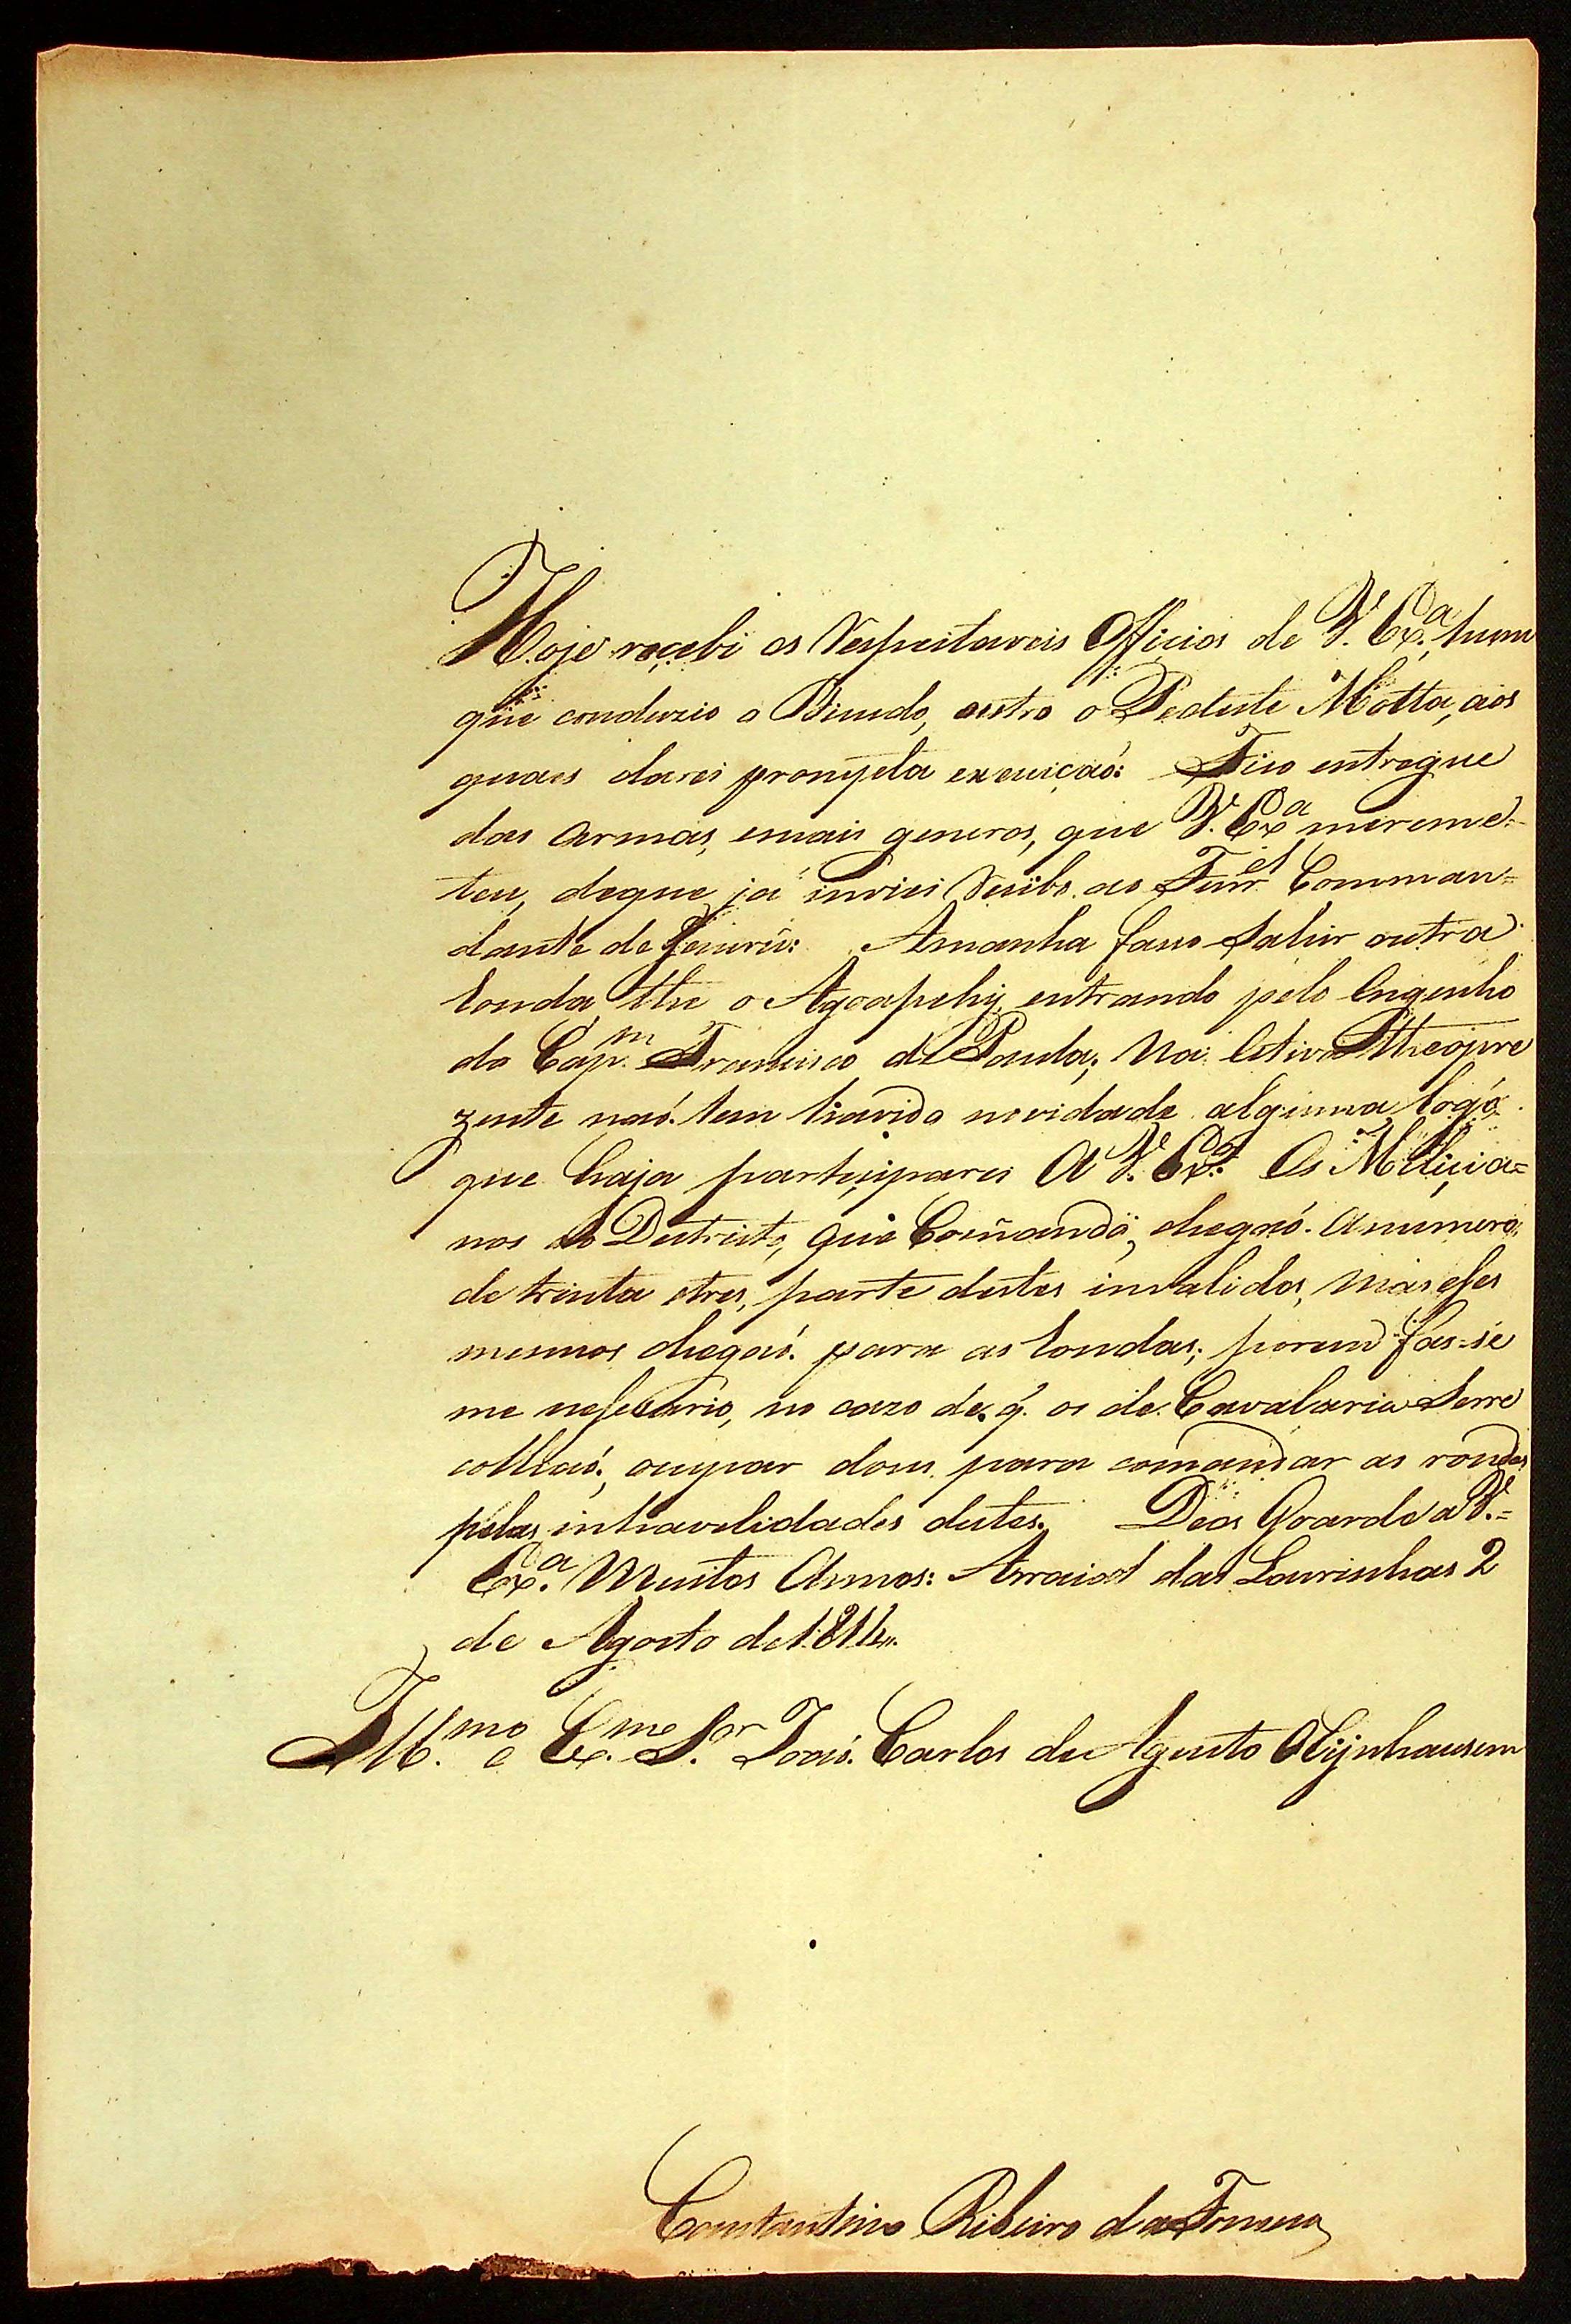 Hoje reçebi os Respeitaveis Officios de V. Ex.ª, hum
que conduzio o Binedo, outro o Pedeste Motta, aos
quaes darei prompta execuiçaõ: Fico entregue
das armas, emais generos, que V. Ex.ª mereme=
teu, deque já inviei Resibo ao Furr.el Comman=
dante de Jaurú: Amanha faço Sahir outra
Ronda the o Agoapehy, entrando pelo Engenho
do Cap.m Francisco de Paula; Na Estiva the opre
zente naõ tem havido novidade alguma, logo
que haja partiçiparei A V. Ex.ª Os Miliçia=
nos do Destricto, que Comando, chegaõ. A numero
de trinta etres, parte destes invalidos, mas eses
mesmos chegaõ. para as Rondas; porem fas-se
me nesesario, no cazo de q. os de Cavalaria Serre
colhaõ, ocupar dois para comandar as rondas
pelas inhavelidades destes. Deos Guarde a V.=
Ex.ª Muitos Annos: Arraial das Lavrinhas 2
de Agosto de 1811,,
Ill.mo e Ex.mo S.or Joaõ Carlos de Agusto OEijnhausem
Constantino Ribeiro da Fonseca